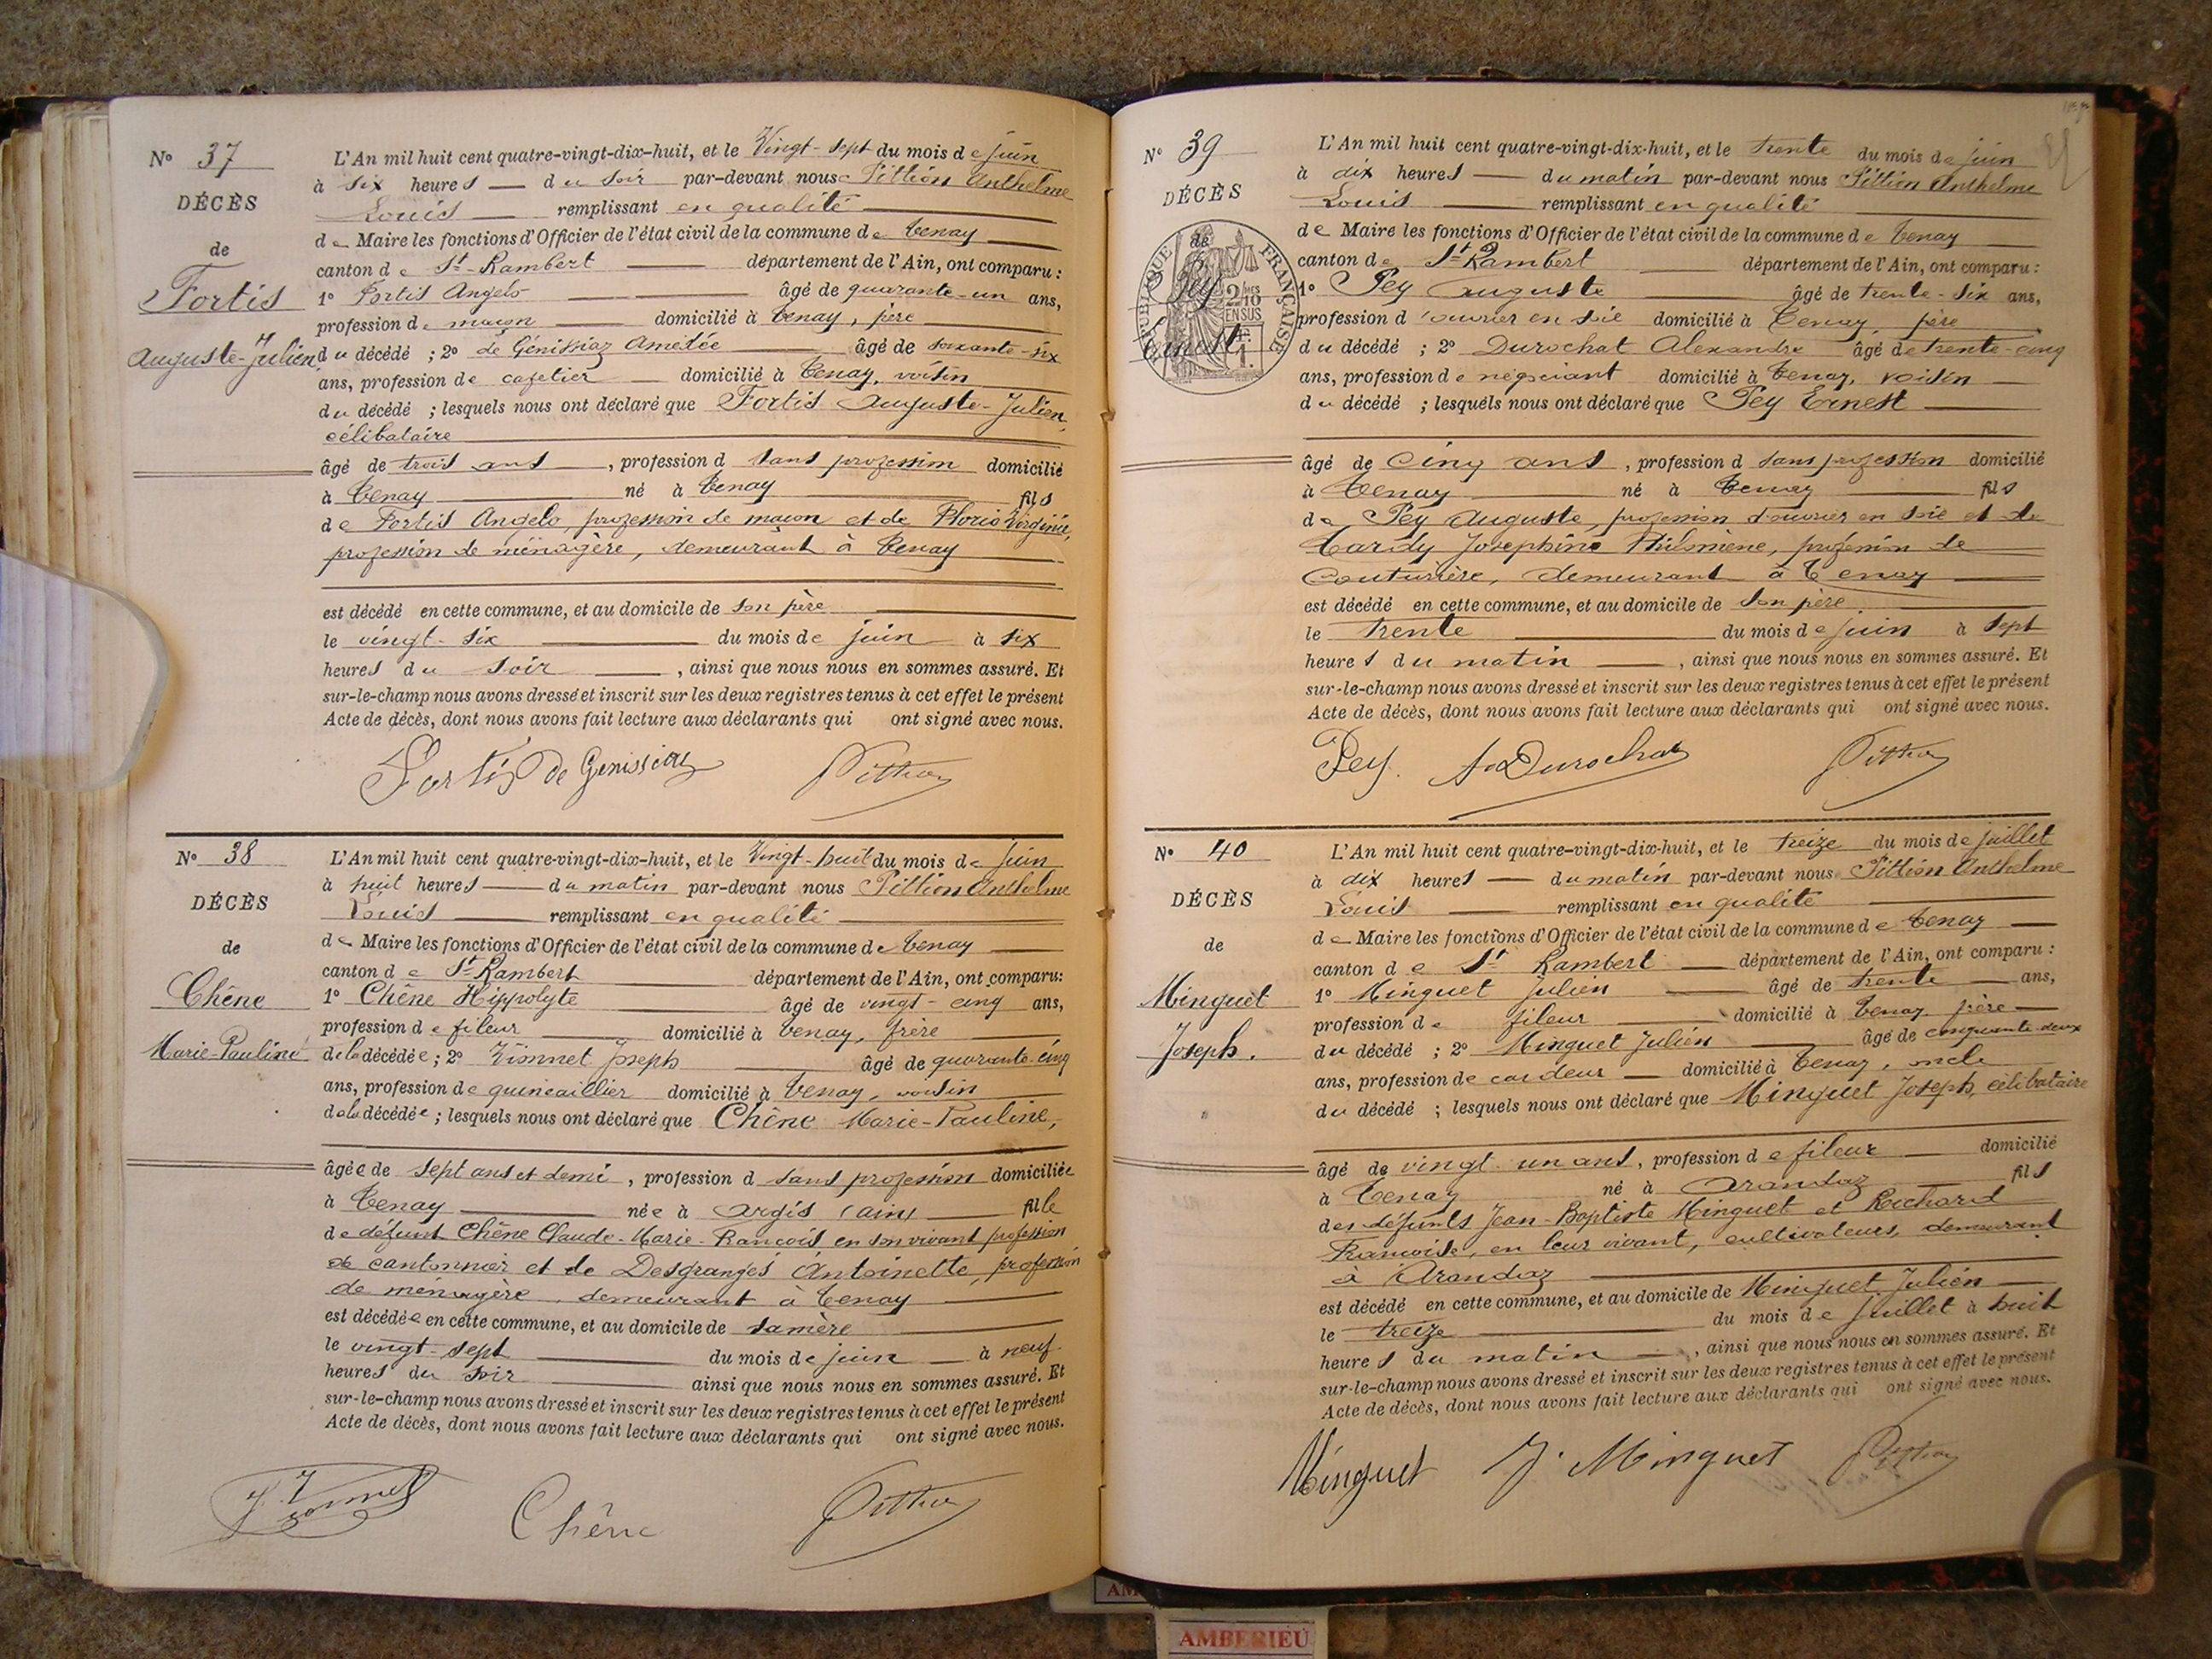 N° 37
DÉCÈS
de
Fortis
Auguste-Julien
L'An mil huit cent quatre-vingt-dix-huit, et le Vingt-sept du mois de juin
à six heures du soir par-devant nous Pittion Anthelme
Louis remplissant en qualité
de Maire les fonctions d'Officier de l'état civil de la commune de Tenay
canton de St-Rambert département de l'Ain, ont comparu :
1° Fortis Angelo âgé de quarante-un ans,
profession de maçon domicilié à Tenay, père
du décédé ; 2° de Génissiaz Amédée âgé de soixante-six
ans, profession de cafetier domicilié à Tenay, voisin
du décédé ; lesquels nous ont déclaré que Fortis Auguste-Julien,
célibataire
âgé de trois ans, profession d sans profession domicilié
à Tenay né à Tenay fils
de Fortis Angelo, profession de maçon et de Florio Virginie,
profession de ménagère, demeurant à Tenay
est décédé en cette commune, et au domicile de son père
le vingt-six du mois de juin à six
heures du soir, ainsi que nous nous en sommes assuré. Et
sur-le-champ nous avons dressé et inscrit sur les deux registres tenus à cet effet le présent
Acte de décès, dont nous avons fait lecture aux déclarants qui ont signé avec nous.
Fortis De Genissiaz Pittion
N° 38
DÉCÈS
de
Chêne
Marie-Pauline
L'An mil huit cent quatre-vingt-dix-huit, et le Vingt-huit du mois de juin
à huit heures du matin par-devant nous Pittion Anthelme
Louis remplissant en qualité
de Maire les fonctions d'Officier de l'état civil de la commune de Tenay
canton de St-Rambert département de l'Ain, ont comparu:
1° Chêne Hippolyte âgé de vingt-cinq ans,
profession de fileur domicilié à Tenay, frère
de la décédée ; 2° Vionnet Joseph âgé de quarante-cinq
ans, profession de quincaillier domicilié à Tenay, voisin
de la décédée ; lesquels nous ont déclaré que Chêne Marie-Pauline,
âgée de sept ans et demi, profession d sans profession domiciliée
à Tenay née à Argis (ain) fille
de défunt Chêne Claude-Marie-François en son vivant profession
de cantonnier et de Desgranges Antoinette, profession
de ménagère, demeurant à Tenay
est décédée en cette commune, et au domicile de sa mère
le vingt-sept du mois de juin à neuf
heures du soir ainsi que nous nous en sommes assuré. Et
sur-le-champ nous avons dressé et inscrit sur les deux registres tenus à cet effet le présent
Acte de décès, dont nous avons fait lecture aux déclarants qui ont signé avec nous.
J Vionnet Chêne Pittion
N° 39
DÉCÈS
de
Pey
Ernest
RÉPUBLIQUE FRANÇAISE
2/10 EN SUS
L'An mil huit cent quatre-vingt-dix-huit, et le trente du mois de juin
à dix heures du matin par-devant nous Pittion Anthelme
Louis remplissant en qualité
de Maire les fonctions d'Officier de l'état civil de la commune de Tenay
canton de St-Rambert département de l'Ain, ont comparu :
1° Pey Auguste âgé de trente-six ans,
profession d'ouvrier en soie domicilié à Tenay, père
du décédé ; 2° Durochat Alexandre âgé de trente-cinq
ans, profession de négociant domicilié à Tenay, voisin
du décédé ; lesquels nous ont déclaré que Pey Ernest
âgé de Cinq ans, profession d sans profession domicilié
à Tenay né à Tenay fils
de Pey Auguste, profession d'ouvrier en soie et de
Tardy Joséphine Philomène, profession de
Couturière, demeurant à Tenay
est décédé en cette commune, et au domicile de son père
le trente du mois de juin à sept
heures du matin, ainsi que nous nous en sommes assuré. Et
sur-le-champ nous avons dressé et inscrit sur les deux registres tenus à cet effet le présent
Acte de décès, dont nous avons fait lecture aux déclarants qui ont signé avec nous.
Pey. A Durochat Pittion
N° 40
DÉCÈS
de
Minguet
Joseph.
L'An mil huit cent quatre-vingt-dix-huit, et le treize du mois de juillet
à dix heures du matin par-devant nous Pittion Anthelme
Louis remplissant en qualité
de Maire les fonctions d'Officier de l'état civil de la commune de Tenay
canton de St Rambert département de l'Ain, ont comparu :
1° Minguet Julien âgé de trente ans,
profession de fileur domicilié à Tenay, frère
du décédé ; 2° Minguet Julien âgé de cinquante-deux
ans, profession de cardeur domicilié à Tenay, oncle
du décédé ; lesquels nous ont déclaré que Minguet Joseph, célibataire
âgé de vingt-un ans, profession de fileur domicilié
à Tenay né à Arandaz fils
des défunts Jean-Baptiste Minguet et Ruchard
Françoise, en leur vivant, cultivateurs, demeurant
à Arandaz
est décédé en cette commune, et au domicile de Minguet Julien
le treize du mois de juillet à huit
heures du matin, ainsi que nous nous en sommes assuré. Et
sur-le-champ nous avons dressé et inscrit sur les deux registres tenus à cet effet le présent
Acte de décès, dont nous avons fait lecture aux déclarants qui ont signé avec nous.
Minguet J. Minguet Pittion
AMBERIEU